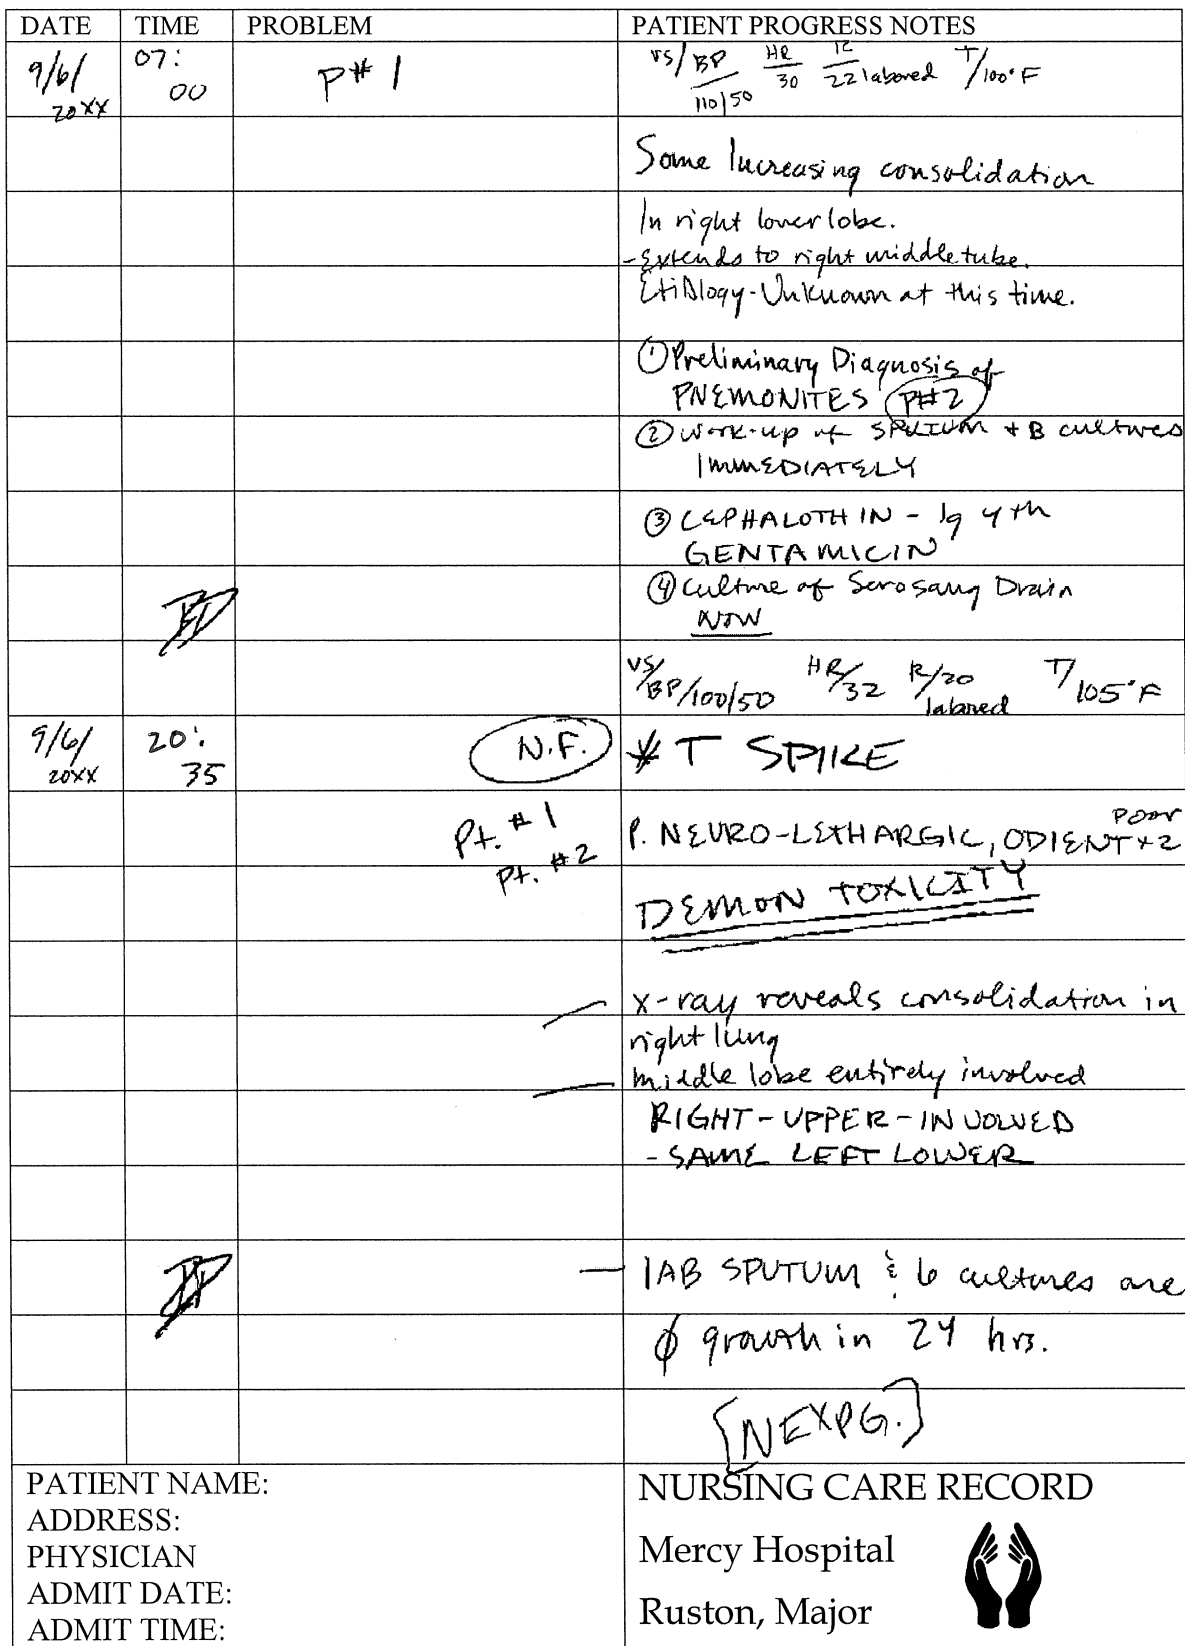 DATE TIME PROBLEM PATIENT PROGRESS NOTES
9/6/ 07: P# 1 VS/BP HR R T/100°F
20XX 00 110/50 30 22 labored
Some Increasing consolidation
In right lower lobe.
-Extends to right middle tube.
Etiology-Unknown at this time.
① Preliminary Diagnosis of
PNEMONITES P#2
② Work-up of SPUTUM + B cultures
IMMEDIATELY
③ CEPHALOTHIN - 1g 4th
GENTAMICIN
④ Culture of Serosang Drain
NOW
VS/BP/100/50 HR/32 R/20 T/105°F
labored
9/6/ 20: N.F. * T SPIKE
20XX 35
Pt. #1 P. NEURO-LETHARGIC, ODIENT x2
poor
Pt. #2
DEMON TOXICITY
— X-ray reveals consolidation in
right lung
— middle lobe entirely involved
RIGHT-UPPER-INVOLVED
- SAME LEFT LOWER
— LAB SPUTUM & b cultures are
∅ growth in 24 hrs.
[NEXPG.]
PATIENT NAME: NURSING CARE RECORD
ADDRESS:
PHYSICIAN Mercy Hospital
ADMIT DATE:
ADMIT TIME: Ruston, Major